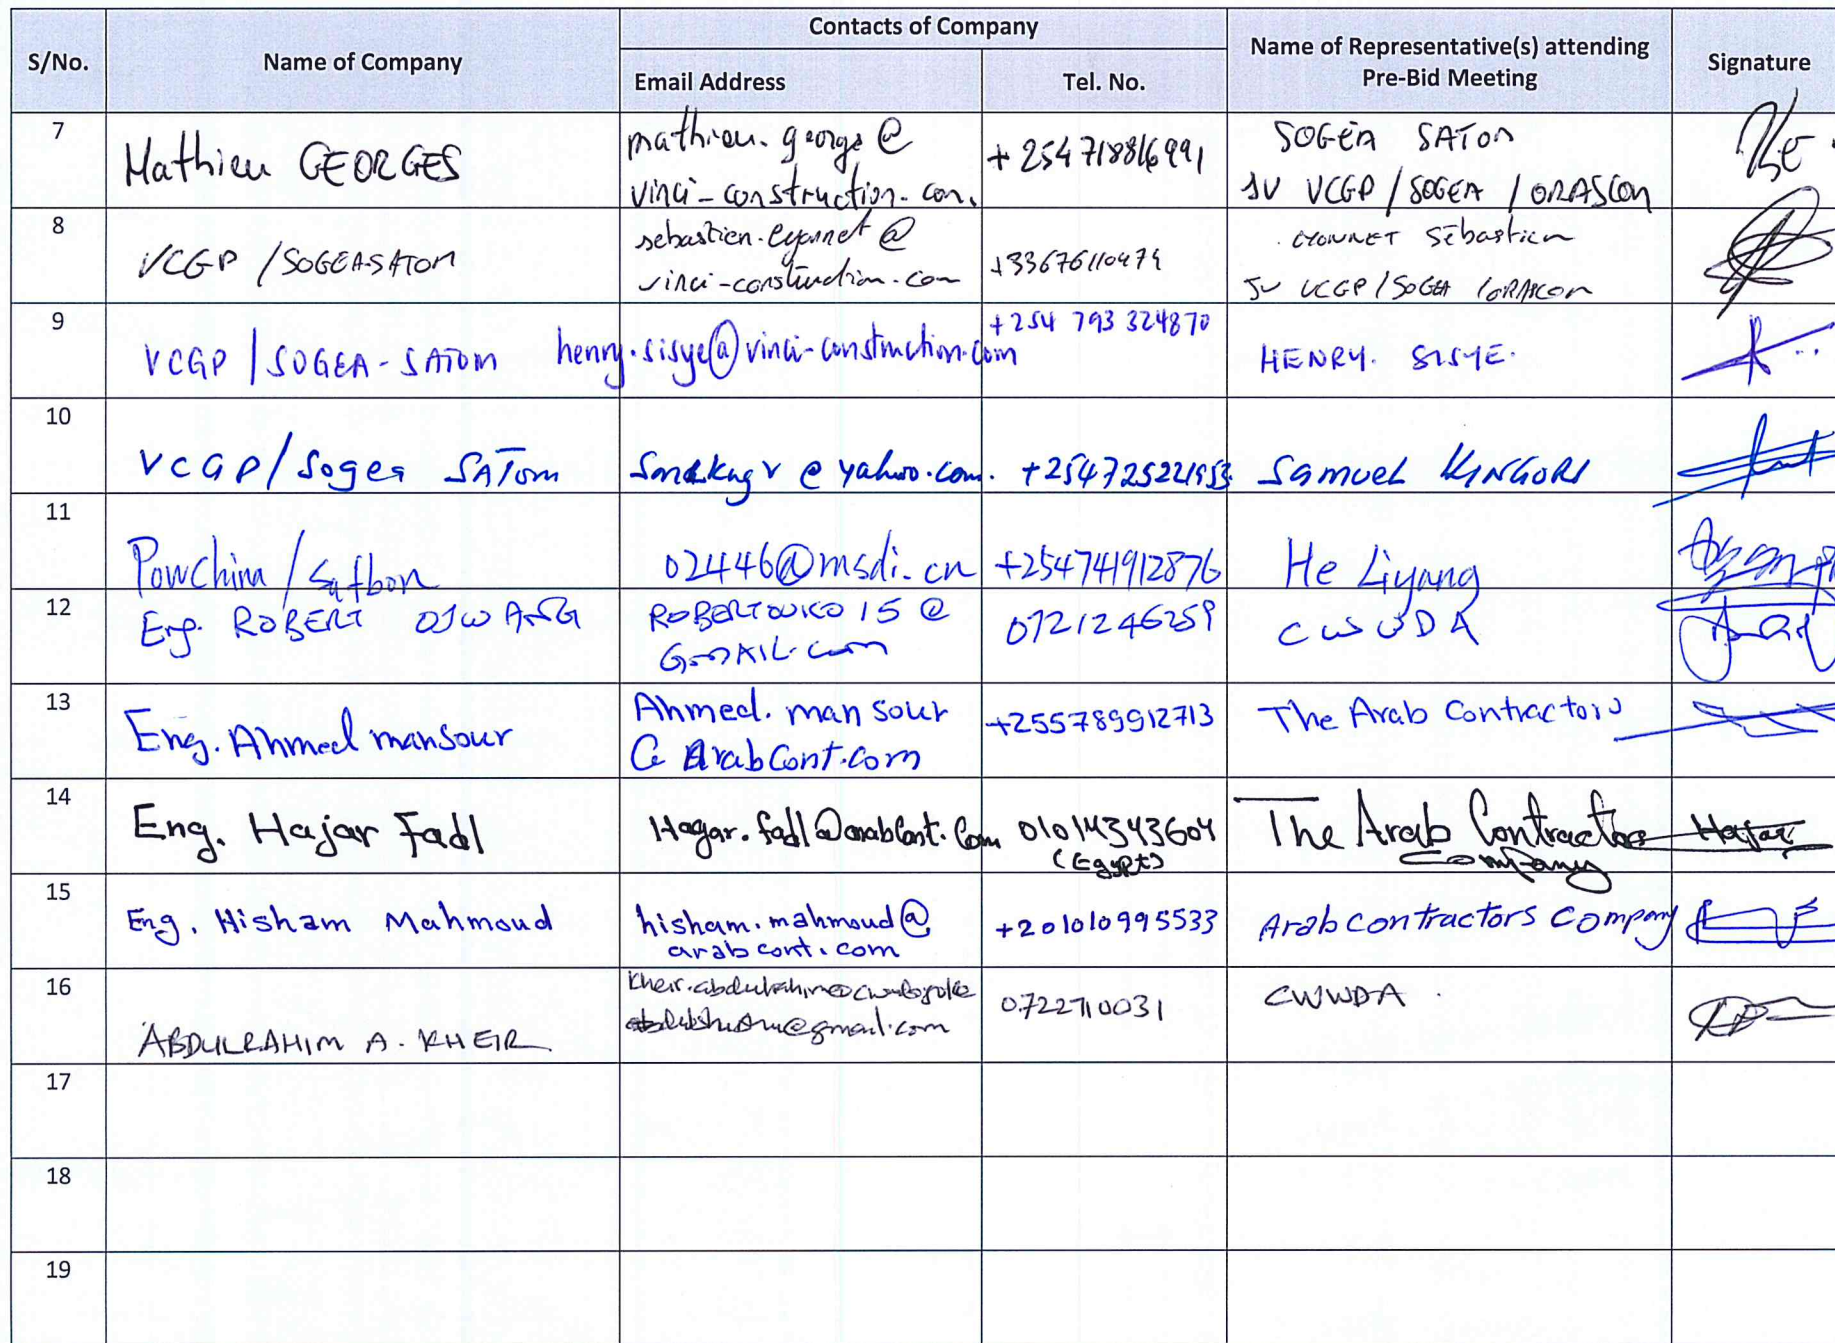 S/No.
Name of Company
Contacts of Company
Email Address
Tel. No.
Name of Representative(s) attending
Pre-Bid Meeting
Signature
7
Mathieu GEORGES
mathieu.george@
vinci-construction.com.
+254718816991
SOGEA SATOM
JV VCGP / SOGEA / ORASCOM
8
VCGP / SOGEA-SATOM
sebastien.eyonnet@
vinci-construction.com
+33676110479
EYONNET Sébastien
JV VCGP / SOGEA / ORASCOM
9
VCGP / SOGEA-SATOM
henry.sisye@vinci-construction.com
+254 793 324870
HENRY. SISYE.
10
VCGP/Sogea SATOM
@yahoo.com.
+254725221953
Samuel KINGORI
11
Powchina / Safbon
02446@msdi.cn
+254741912876
He Liyang
12
Eng. ROBERT OJWANG
ROBERTOUKO15@
GMAIL.com
0721246259
CWWDA
13
Eng. Ahmed mansour
Ahmed.mansour
@Arabcont.com
+255789912713
The Arab Contractors
14
Eng. Hajar Fadl
Hagar.fadl@arabcont.com
01014343604
(Egypt)
The Arab Contractors
Company
Hajar
15
Eng. Hisham Mahmoud
hisham.mahmoud@
arabcont.com
+201010995533
Arab contractors Company
16
ABDULRAHIM A. KHEIR
@gmail.com
0722710031
CWWDA.
17
18
19